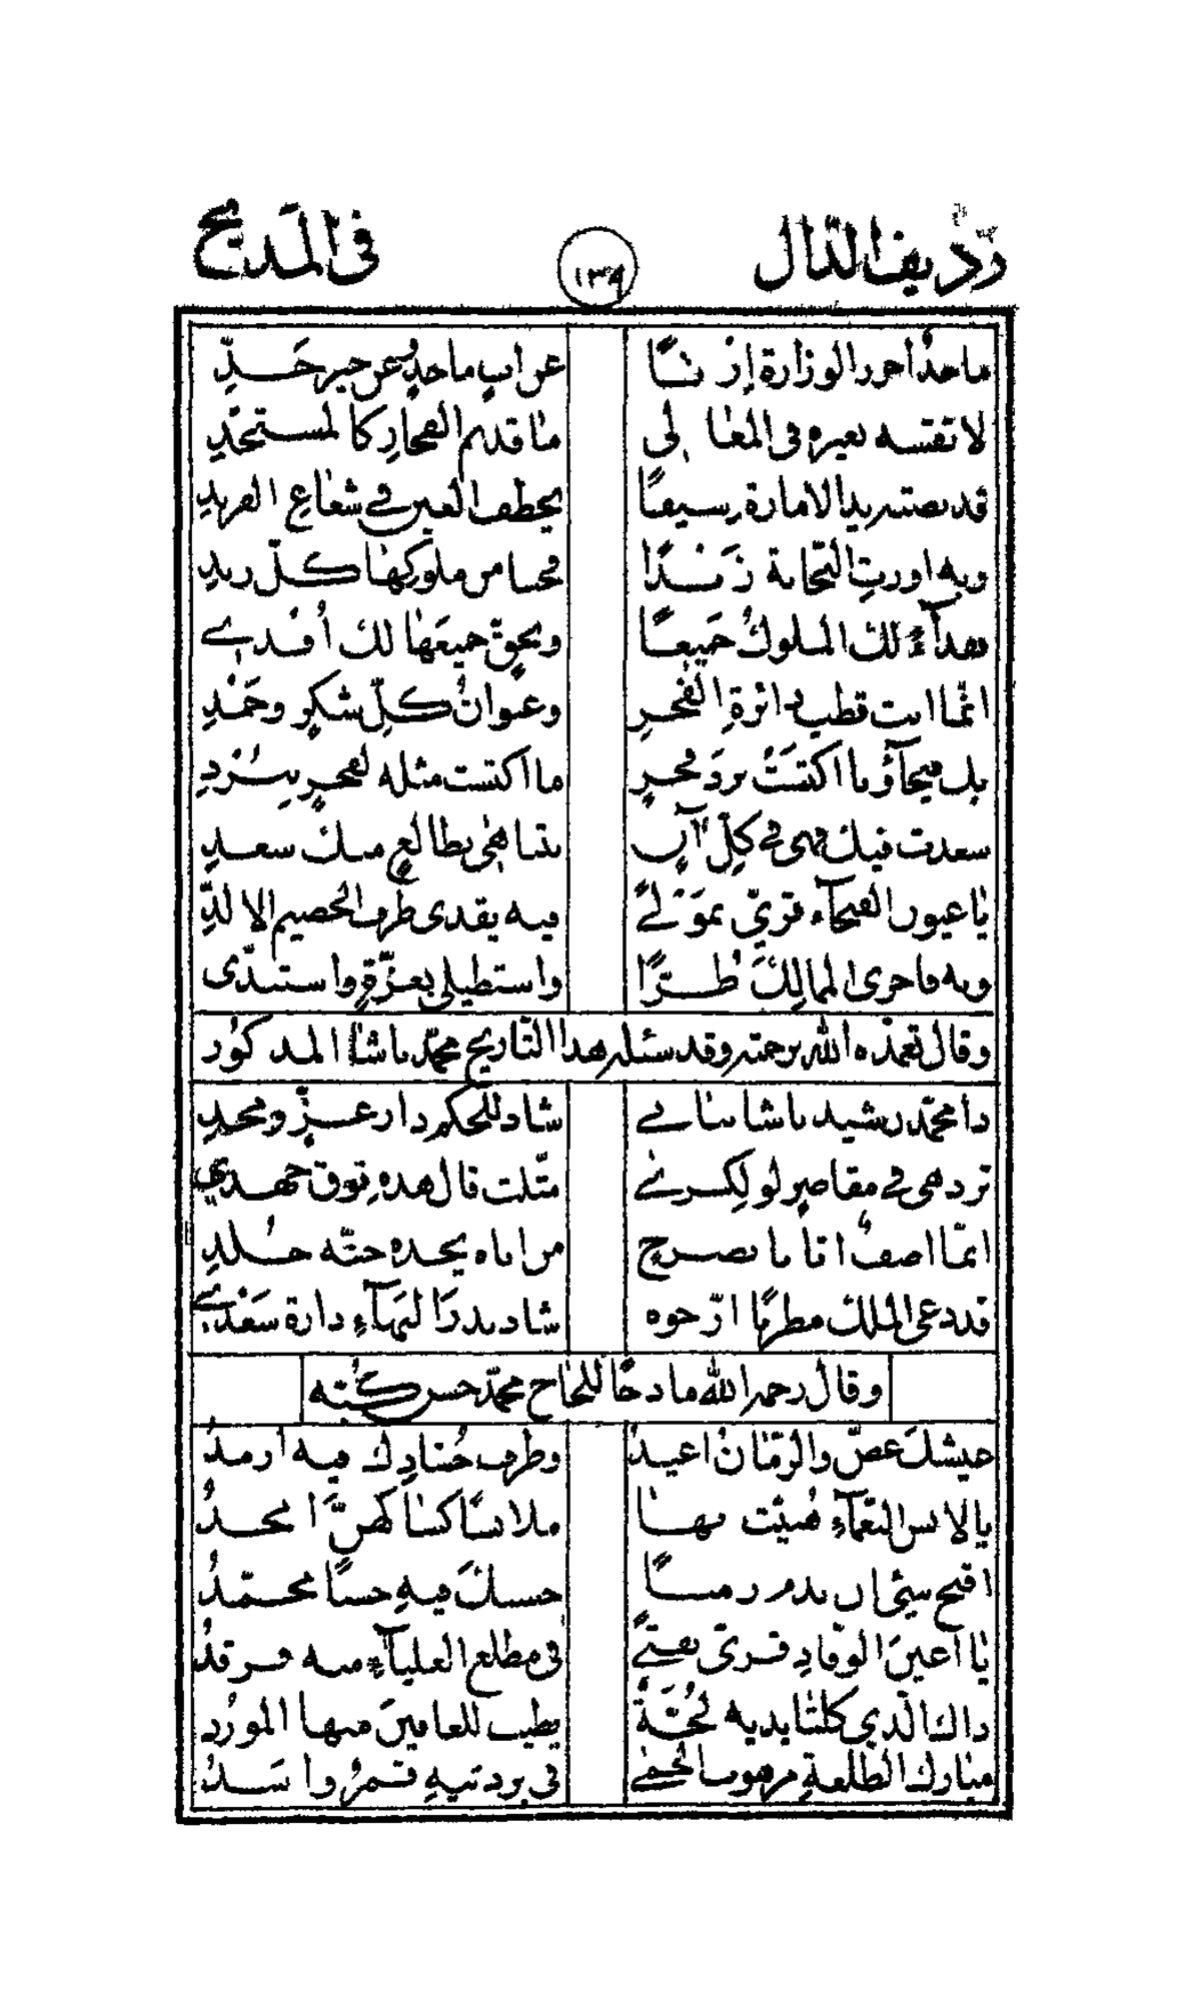 رديف الدال ١٣٩ في المديح
ماجد أحرز الوزارة إرثًا عن أب ماجد وعن خير جدّ
لا تقسه بغيره في المعالي ما قديم الفخار كالمستجدّ
قد نضته يد الامارة سيفًا يخطف العين في شعاع الفرند
وبه اورت النجابة زندًا من ملوكها كلّ زند
فداء لك الملوك جميعًا وبحق جميعها لك أفدي
انّما انت قطب دائرة الفخر وعنوان كلّ شكر وحمد
بك فيحاؤنا اكتست برد فخر ما اكتست مثله لفخر ببرد
سعدت فيك فهي في كلّ آن بطالع منك سعد
يا عيون الفيحاء قرّي بمولى فيه يقذى طرف الخصيم الالدّ
وبه فاخري الممالك طرّا واستطيلي بعزّة واستبدّي
وقال تغمّده الله برحمته وقد سئله هذا التاريخ محمّد باشا المذكور
ذا محمّد رشيد باشا بناني شاد للحكم دار عزّ ومجد
تزدهي في مقاصر لو لكسرى مثّلت قال هذه فوق جهدي
انّما اصف انا يا بصرح من اتاه يجده جنّة خلد
قد دعى الملك مطربًا ارّخوه شاد بدر البهاء دارة سعدي
وقال رحمه الله مادحًا للحاج محمّد حسن كبّه
عيشك غضّ والزمان اغيد وطرف حسّادك فيه أرمد
يا لابس النعماء هنّئت بها ملابسًا كساكهنّ المجد
اقبح شيء ان يذم زمنًا حسنك فيه حسنًا محمّد
يا أعين الوفّاد قرّي بفتى في مطلع العلياء منه فرقد
ذاك الّذي كلتا يديه لجّة يطيب للعافين منها المورد
مبارك الطلعة مرهوب الحمى في بردتيه قمر واسد